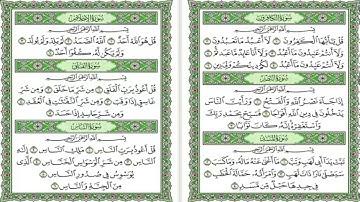 سورة الكافرون
بسم الله الرحمن الرحيم
قُلْ يَا أَيُّهَا الْكَافِرُونَ ۝ لَا أَعْبُدُ مَا تَعْبُدُونَ ۝
وَلَا أَنتُمْ عَابِدُونَ مَا أَعْبُدُ ۝ وَلَا أَنَا عَابِدٌ مَّا عَبَدتُّمْ ۝
وَلَا أَنتُمْ عَابِدُونَ مَا أَعْبُدُ ۝ لَكُمْ دِينُكُمْ وَلِيَ دِينِ ۝
سورة النصر
بسم الله الرحمن الرحيم
إِذَا جَاءَ نَصْرُ اللَّهِ وَالْفَتْحُ ۝ وَرَأَيْتَ النَّاسَ
يَدْخُلُونَ فِي دِينِ اللَّهِ أَفْوَاجًا ۝ فَسَبِّحْ بِحَمْدِ رَبِّكَ
وَاسْتَغْفِرْهُ إِنَّهُ كَانَ تَوَّابًا ۝
سورة المسد
بسم الله الرحمن الرحيم
تَبَّتْ يَدَا أَبِي لَهَبٍ وَتَبَّ ۝ مَا أَغْنَىٰ عَنْهُ مَالُهُ وَمَا كَسَبَ ۝
سَيَصْلَىٰ نَارًا ذَاتَ لَهَبٍ ۝ وَامْرَأَتُهُ حَمَّالَةَ الْحَطَبِ ۝
فِي جِيدِهَا حَبْلٌ مِّن مَّسَدٍ ۝
سورة الإخلاص
بسم الله الرحمن الرحيم
قُلْ هُوَ اللَّهُ أَحَدٌ ۝ اللَّهُ الصَّمَدُ ۝ لَمْ يَلِدْ وَلَمْ يُولَدْ ۝
وَلَمْ يَكُن لَّهُ كُفُوًا أَحَدٌ ۝
سورة الفلق
بسم الله الرحمن الرحيم
قُلْ أَعُوذُ بِرَبِّ الْفَلَقِ ۝ مِن شَرِّ مَا خَلَقَ ۝ وَمِن شَرِّ
غَاسِقٍ إِذَا وَقَبَ ۝ وَمِن شَرِّ النَّفَّاثَاتِ فِي الْعُقَدِ ۝
وَمِن شَرِّ حَاسِدٍ إِذَا حَسَدَ ۝
سورة الناس
بسم الله الرحمن الرحيم
قُلْ أَعُوذُ بِرَبِّ النَّاسِ ۝ مَلِكِ النَّاسِ ۝ إِلَٰهِ
النَّاسِ ۝ مِن شَرِّ الْوَسْوَاسِ الْخَنَّاسِ ۝ الَّذِي
يُوَسْوِسُ فِي صُدُورِ النَّاسِ ۝
مِنَ الْجِنَّةِ وَالنَّاسِ ۝